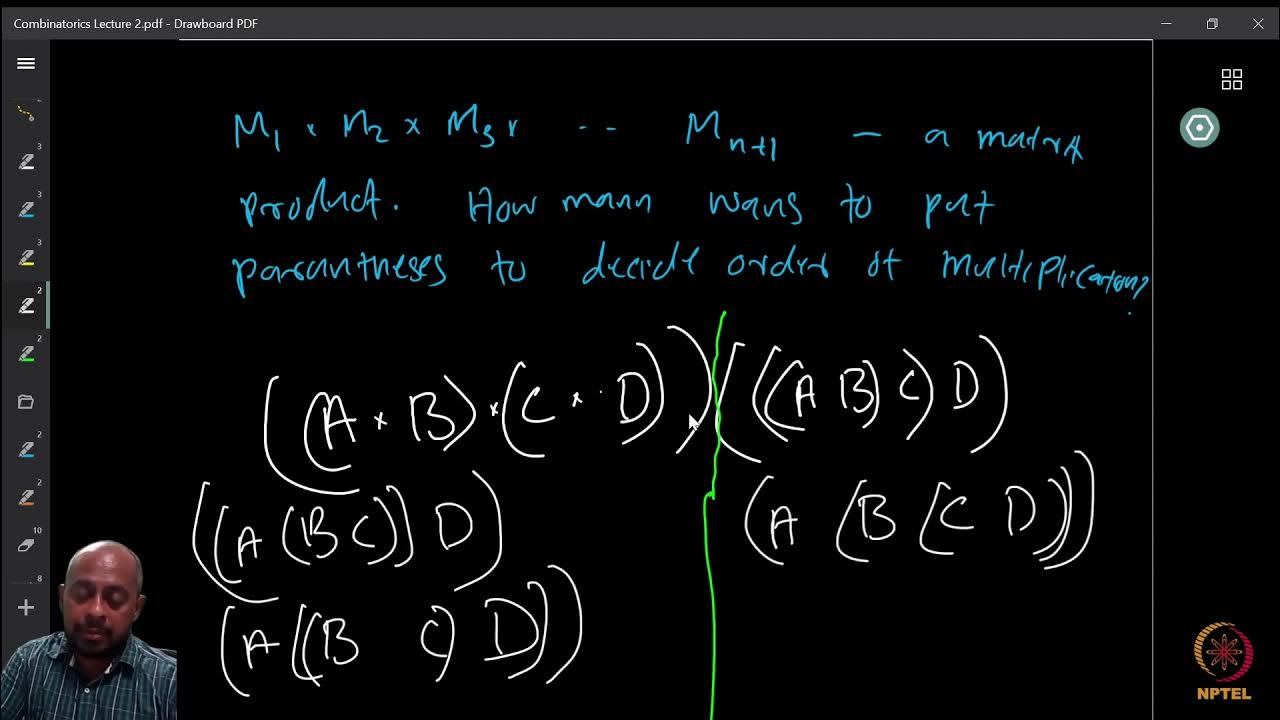 Combinatorics Lecture 2.pdf - Drawboard PDF
M1 × M2 × M3 × .. Mn+1 — a matrix
product. How many ways to put
parantheses to decide order of multiplication?
((A × B) × (C × D)) (((A B) C) D)
((A (B C)) D) (A (B (C D)))
(A ((B C) D))
3
3
3
2
2
2
2
10
8
NPTEL